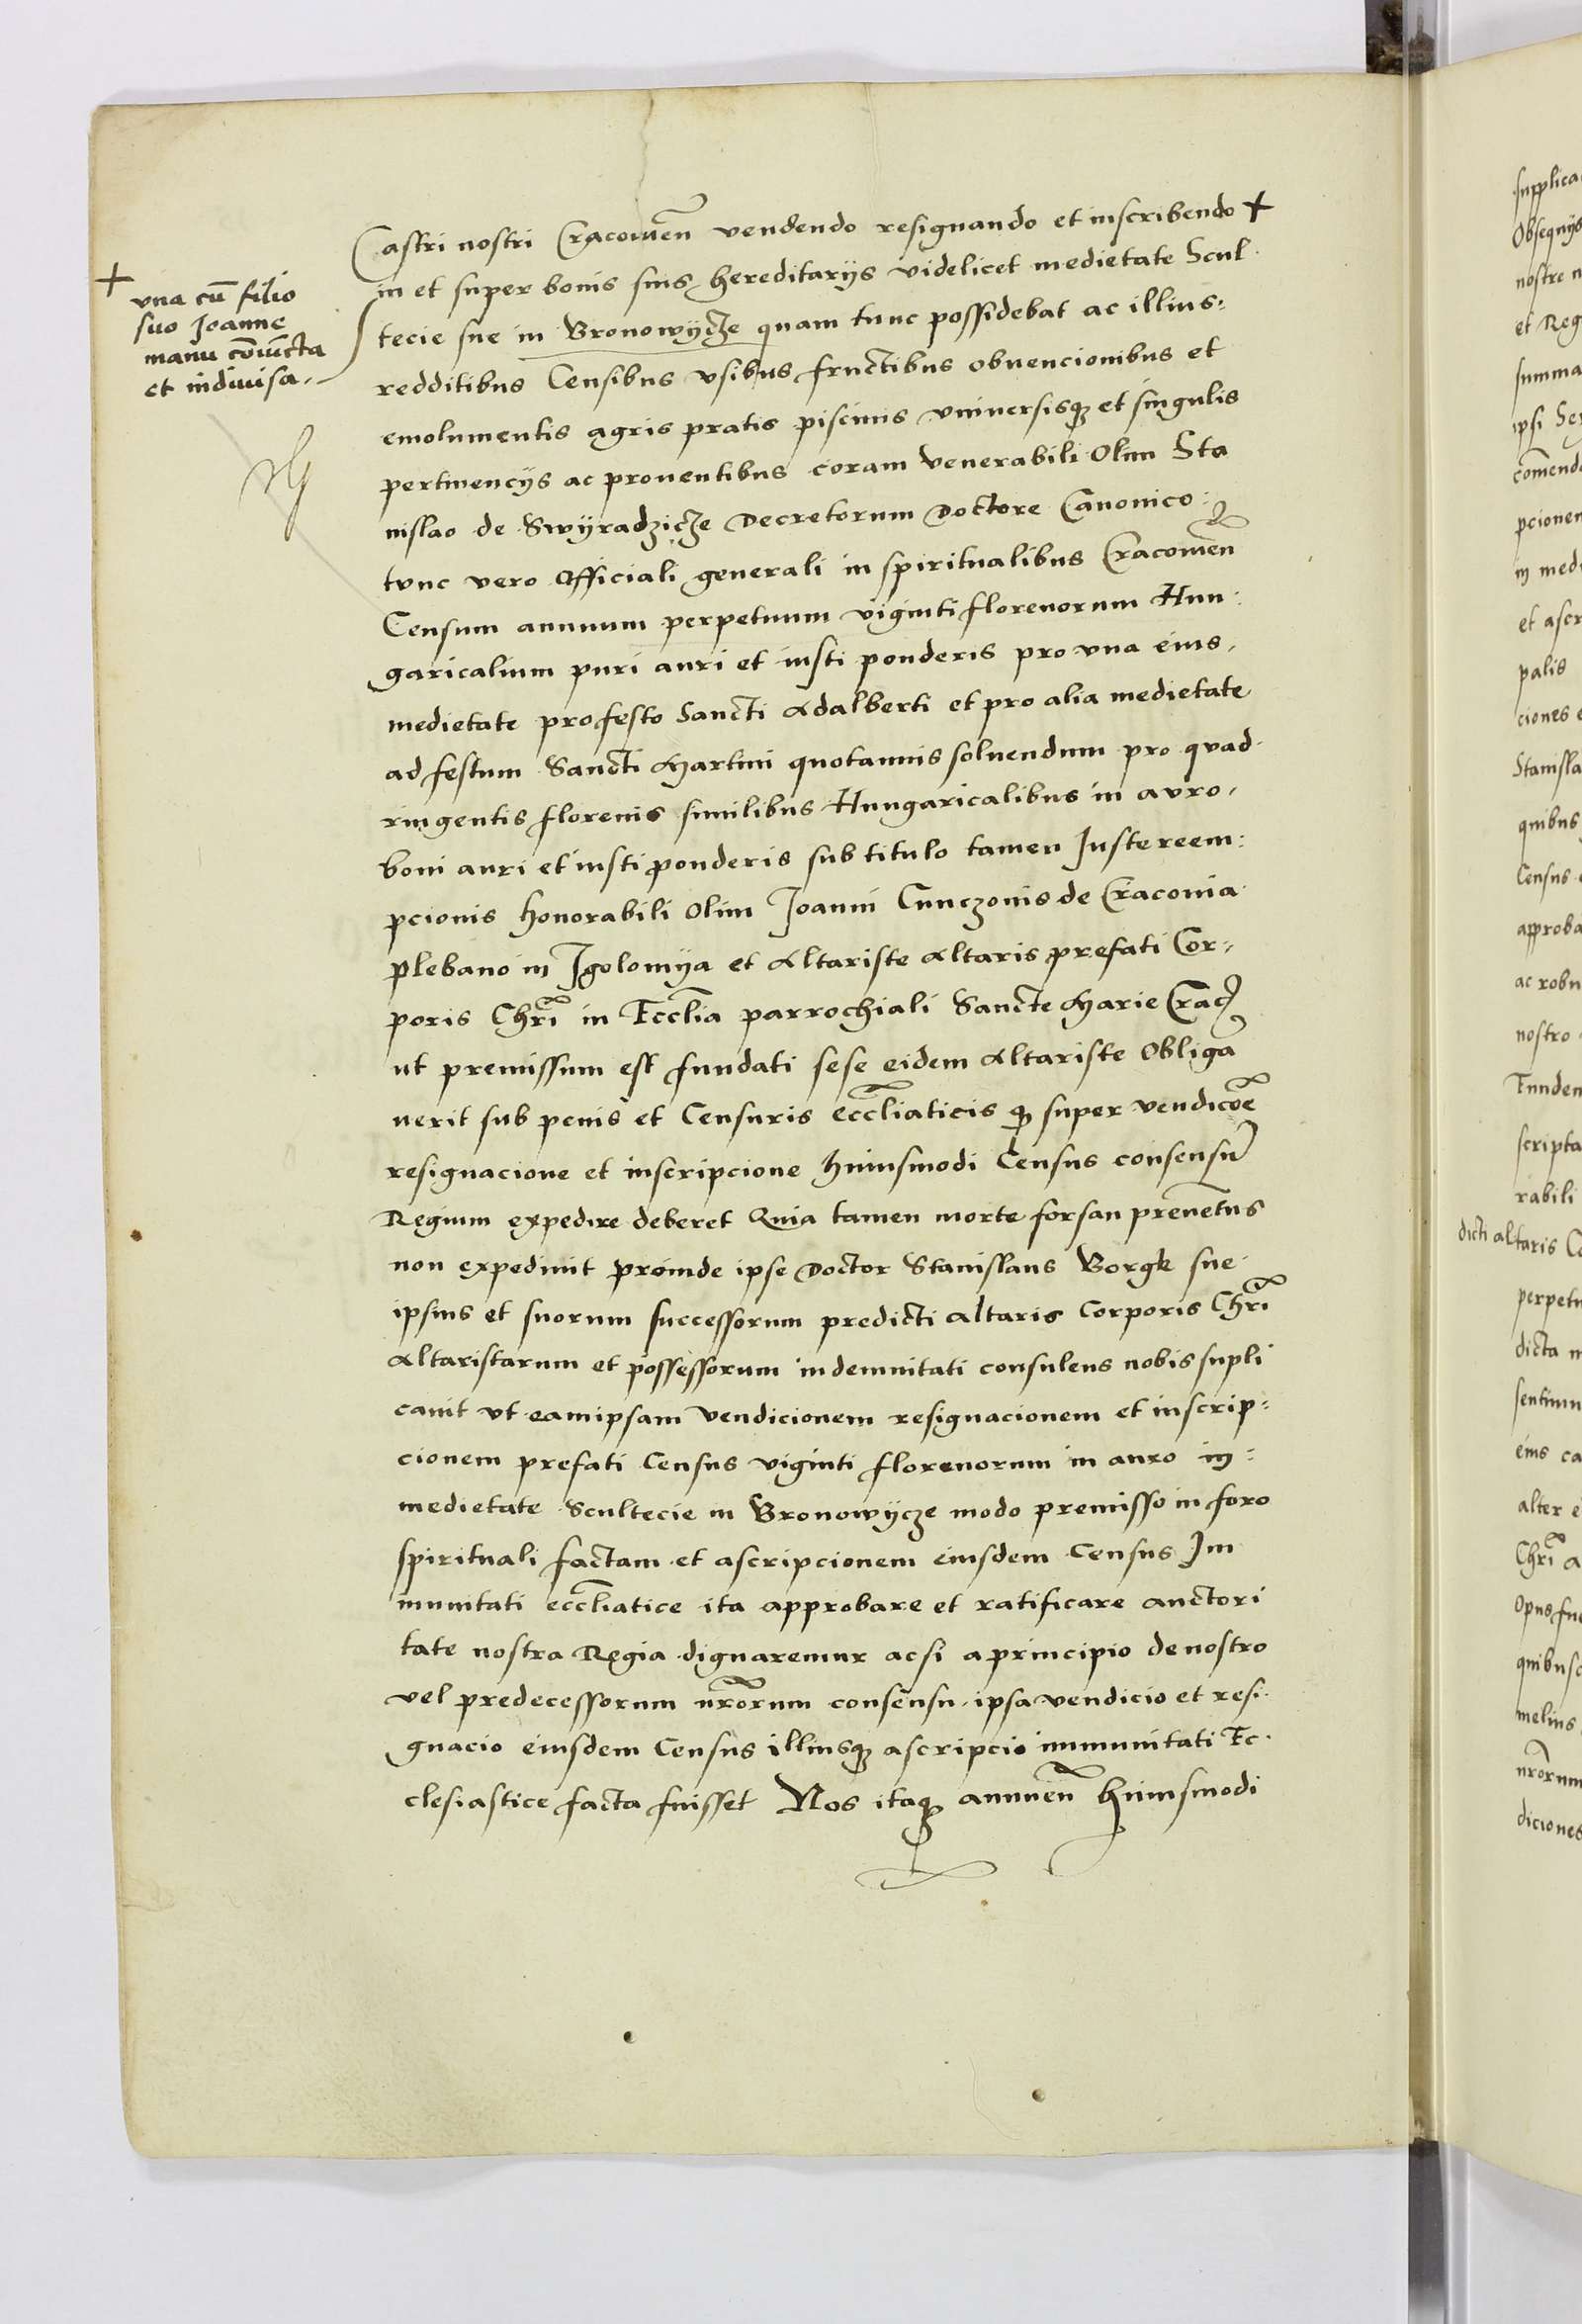 Castri nostri Cracouien vendendo resignando et inscribendo +
+ vna cu̅ filio
suo Joanne
manu co̅iu̅cta
et indiuisa.
in et super bonis suis hereditarijs videlicet medietate Scul
tecie sue in Bronowycze quam tunc possidebat ac illius
redditibus Censibus vsibus fructibus obuencionibus et
emolumentis agris pratis piscinis vniuersisq3 et singulis
pertinencijs ac prouentibus coram Venerabili Olim Sta
nislao de Swyradzicze Decretorum Doctore Canonico
tvnc vero Officiali generali in spiritualibus Cracouien̅
Censum annuum perpetuum viginti florenorum Hun:
garicalium puri auri et iusti ponderis pro vna eius
medietate pro festo Sancti Adalberti et pro alia medietate
ad festum Sancti Martini quotannis soluendum pro quad
ringentis florenis similibus Hungaricalibus in avro
boni auri et iusti ponderis sub titulo tamen Juste reem:
pcionis honorabili Olim Joanni Cunczonis de Craconia
plebano in Jgolomya et Altariste Altaris prefati Cor
poris Chri̅ in Eccl̅ia parrochiali Sancte Marie Crac
ut premissum est fundati sese eidem Altariste Obliga
uerit sub penis et Censuris eccl̅iaticis q3 super vendico̅e
resignacione et inscripcione huiusmodi Census consensum
Regium expedire deberet Quia tamen morte forsan preue̅tus
non expediuit proinde ipse Doctor Stanislaus Borgk sue
ipsius et suorum successorum predicti Altaris Corporis Chri̅
Altaristarum et possessorum indemnitati consulens nobis supli
cauit vt eamipsam vendicionem resignacionem et inscrip=
cionem prefati Census viginti florenorum in auro in
medietate Scultecie in Bronowycze modo premisso in foro
spirituali factam et ascripcionem eiusdem Census Im
munitati eccl̅iatice ita approbare et ratificare auctori
tate nostra Regia dignaremur acsi a principio de nostro
vel predecessorum nr̅orum consensu ipsa vendicio et resi
gnacio eiusdem Census illiusq3 ascripcio immunitati Ec
clesiastice facta fuisset Nos itaq3 annuen̅ huiusmodi
supplica
Obsequijs
nostre
et Reg
summa
ipsi
com̅end
pcionem
in med
et ascr
palis
ciones
Stanisla
quibus
Census
approba
ac robu
nostro
Eunden
scripta
rabili
dicti altaris
perpetu
dicta
sentimu
eius ca
alter
Chri̅ a
Opus fue
quibusc
melius
nr̅orum
diciones